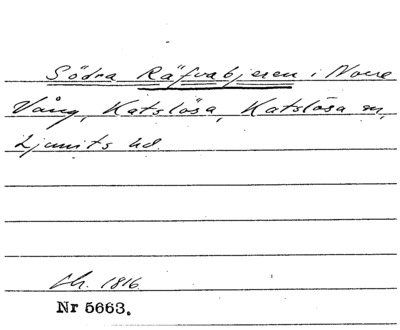 Södra Räfvabjeren i Norre
Vång, Katslösa, Katslösa sn,
Ljunits hd.
Ch. 1816
Nr 5663.